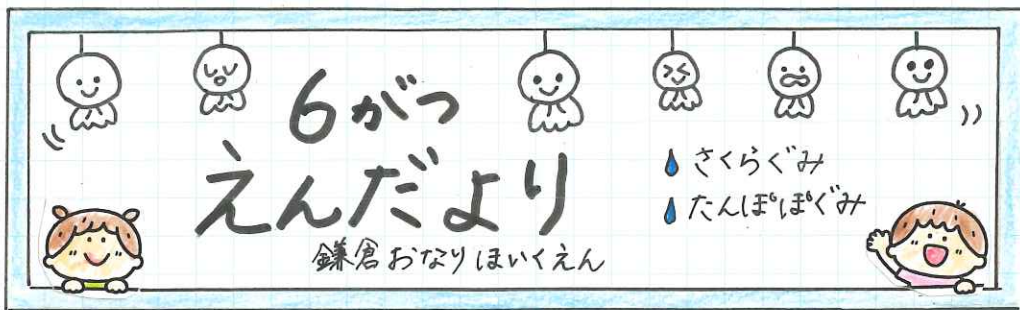 6がつ
えんだより
鎌倉おなりほいくえん
さくらぐみ
たんぽぽぐみ